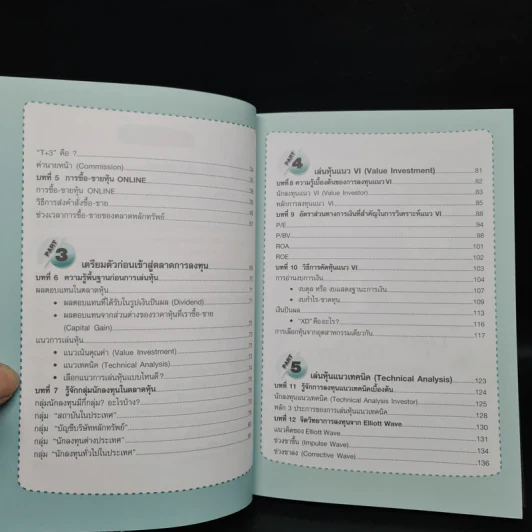 "T+3" คือ ?
ค่านายหน้า (Commission)
บทที่ 5 การซื้อ-ขายหุ้น ONLINE
การซื้อ-ขายหุ้น ONLINE
วิธีการส่งคำสั่งซื้อ-ขาย
ช่วงเวลาการซื้อ-ขายของตลาดหลักทรัพย์
PART 3
เตรียมตัวก่อนเข้าสู่ตลาดการลงทุน
บทที่ 6 ความรู้พื้นฐานก่อนการเล่นหุ้น
ผลตอบแทนในตลาดหุ้น
• ผลตอบแทนที่ได้รับในรูปเงินปันผล (Dividend)
• ผลตอบแทนจากส่วนต่างของราคาหุ้นที่เราซื้อ-ขาย
(Capital Gain)
แนวการเล่นหุ้น
• แนวเน้นคุณค่า (Value Investment)
• แนวเทคนิค (Technical Analysis)
• เลือกแนวการเล่นหุ้นแบบไหนดี?
บทที่ 7 รู้จักกลุ่มนักลงทุนในตลาดหุ้น
กลุ่มนักลงทุนมีกี่กลุ่ม? อะไรบ้าง?
กลุ่ม "สถาบันในประเทศ"
กลุ่ม "บัญชีบริษัทหลักทรัพย์"
กลุ่ม "นักลงทุนต่างประเทศ"
กลุ่ม "นักลงทุนทั่วไปในประเทศ"
PART 4
เล่นหุ้นแนว VI (Value Investment) 81
บทที่ 8 ความรู้เบื้องต้นของการลงทุนแนว VI 82
นักลงทุนแนว VI (Value Investor) 83
หลักการลงทุนแนว VI 85
บทที่ 9 อัตราส่วนทางการเงินที่สำคัญในการวิเคราะห์แนว VI 88
P/E 94
P/BV 98
ROA 101
ROE 102
บทที่ 10 วิธีการคัดหุ้นแนว VI 103
การอ่านงบการเงิน 104
• งบดุล หรือ งบแสดงฐานะการเงิน 107
• งบกำไร-ขาดทุน 111
เงินปันผล 113
• "XD" คืออะไร? 116
การเลือกหุ้นจากอุตสาหกรรมเดียวกัน 117
PART 5
เล่นหุ้นแนวเทคนิค (Technical Analysis) 123
บทที่ 11 รู้จักการลงทุนแนวเทคนิคเบื้องต้น 124
นักลงทุนแนวเทคนิค (Technical Analysis Investor) 125
หลัก 3 ประการของการเล่นหุ้นแนวเทคนิค 128
บทที่ 12 จิตวิทยาการลงทุนจาก Elliott Wave 130
แนวคิดของ Elliott Wave 131
ช่วงขาขึ้น (Impulse Wave) 134
ช่วงขาลง (Corrective Wave) 136